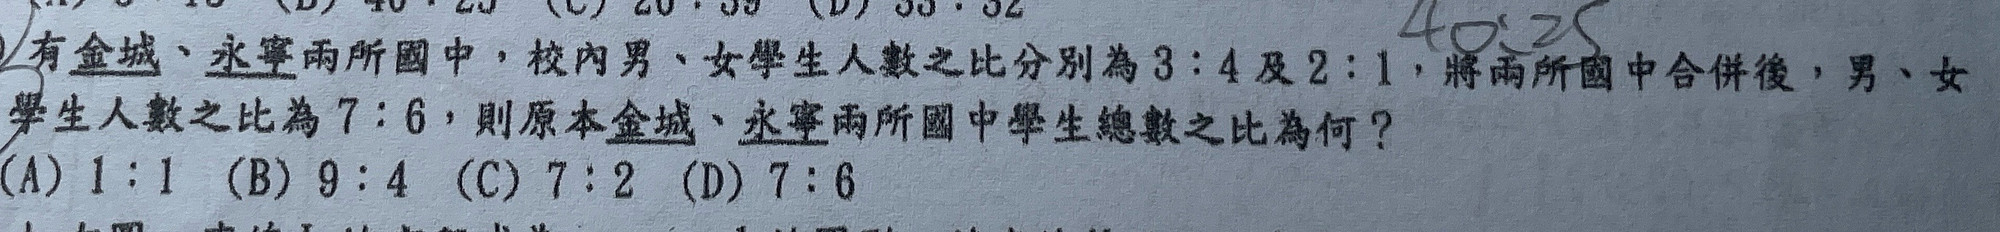 (B) 40：25 (C) 26：39 (D) 33：32
40:25
有金城、永寧兩所國中，校內男、女學生人數之比分別為3：4及2：1，將兩所國中合併後，男、女
學生人數之比為7：6，則原本金城、永寧兩所國中學生總數之比為何？
(A) 1：1 (B) 9：4 (C) 7：2 (D) 7：6